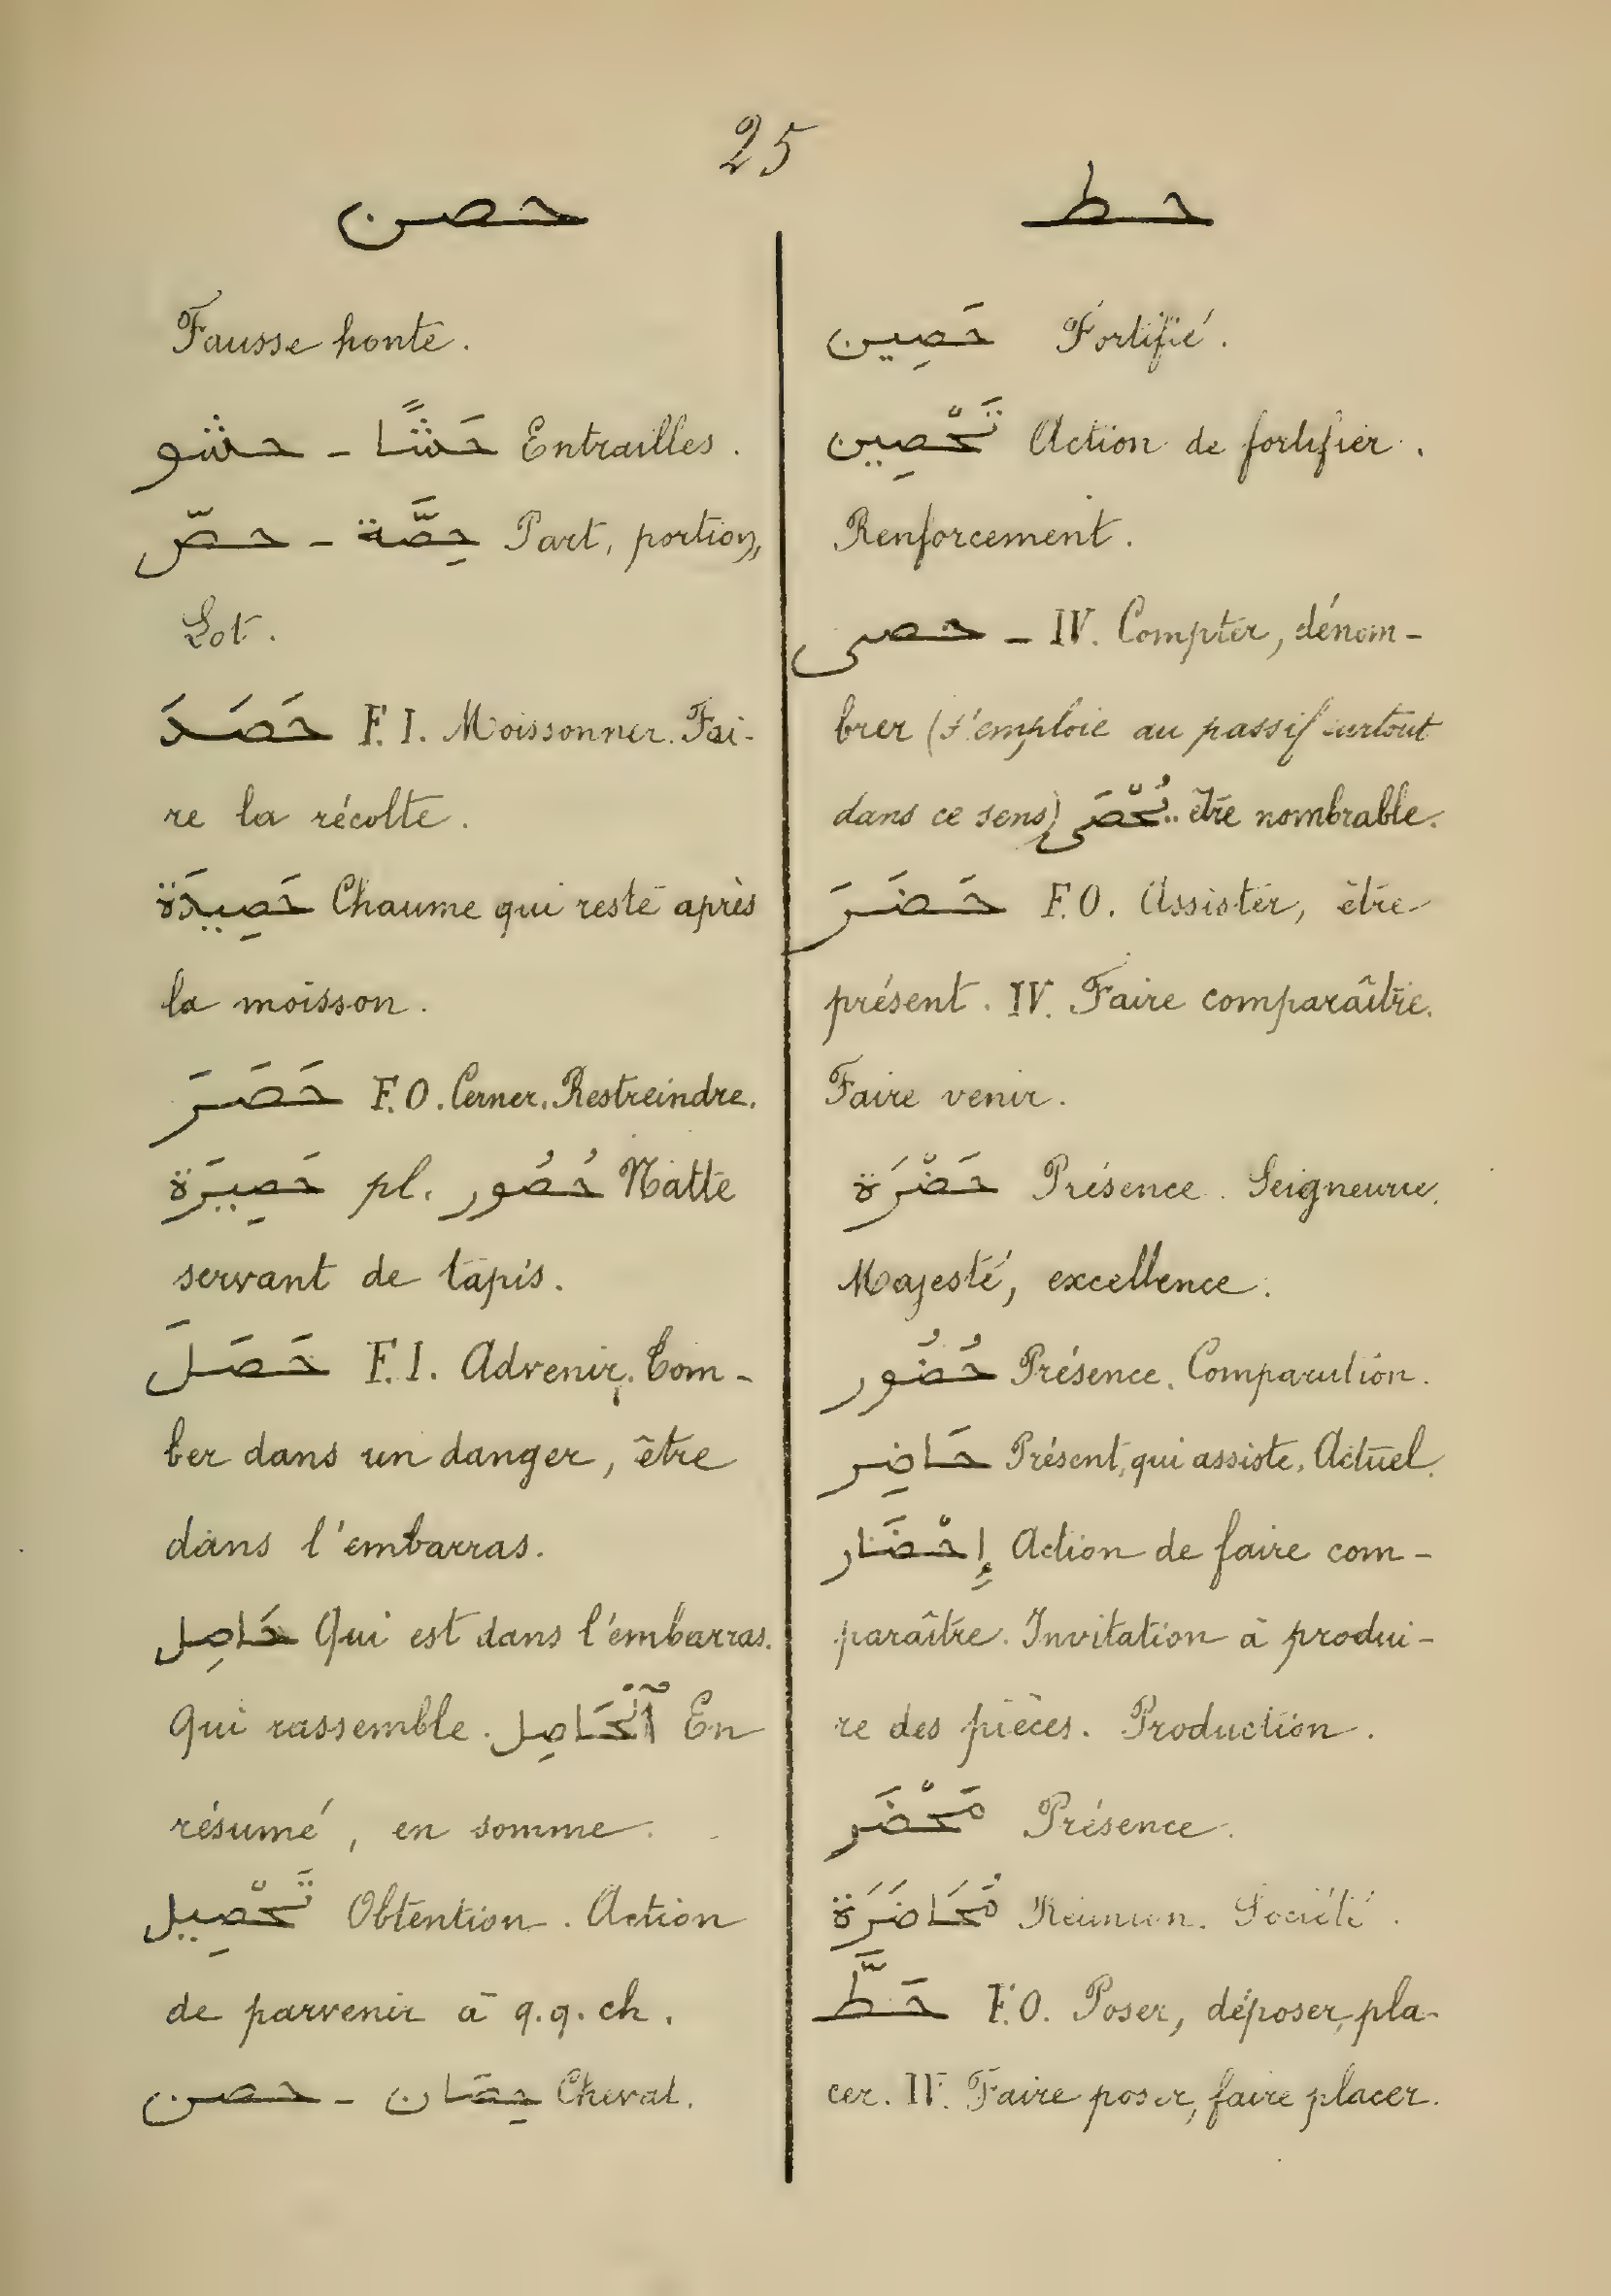 25
حصن
Fausse honte.
حشو - حَشًا Entrailles.
حصّ - حِصَّة Part, portion,
Lot.
حَصَدَ F. I. Moissonner. Fai-
re la récolte.
حَصِيدَة Chaume qui reste après
la moisson.
حَصَرَ F. O. Cerner. Restreindre.
حَصِيرَة pl. حُصُور Natte
servant de tapis.
حَصَلَ F. I. Advenir. Tom-
ber dans un danger, être
dans l'embarras.
حَاصِل Qui est dans l'embarras.
Qui rassemble. اَلْحَاصِل En
résumé, en somme.
تَحْصِيل Obtention. Action
de parvenir à q.q. ch.
حصن - حِصَان Cheval.
حط
حَصِين Fortifié.
تَحْصِين Action de fortifier.
Renforcement.
حصى - IV. Compter, dénom-
brer (s'emploie au passif surtout
dans ce sens) يُحْصَى être nombrable.
حَضَرَ F. O. Assister, être
présent. IV. Faire comparaître.
Faire venir.
حَضْرَة Présence. Seigneurie.
Majesté, excellence.
حُضُور Présence. Comparution.
حَاضِر Présent, qui assiste. Actuel.
إِحْضَار Action de faire com-
paraître. Invitation à produi-
re des pièces. Production.
مَحْضَر Présence.
مُحَاضَرَة Réunion. Société.
حَطَّ F. O. Poser, déposer, pla-
cer. IV. Faire poser, faire placer.